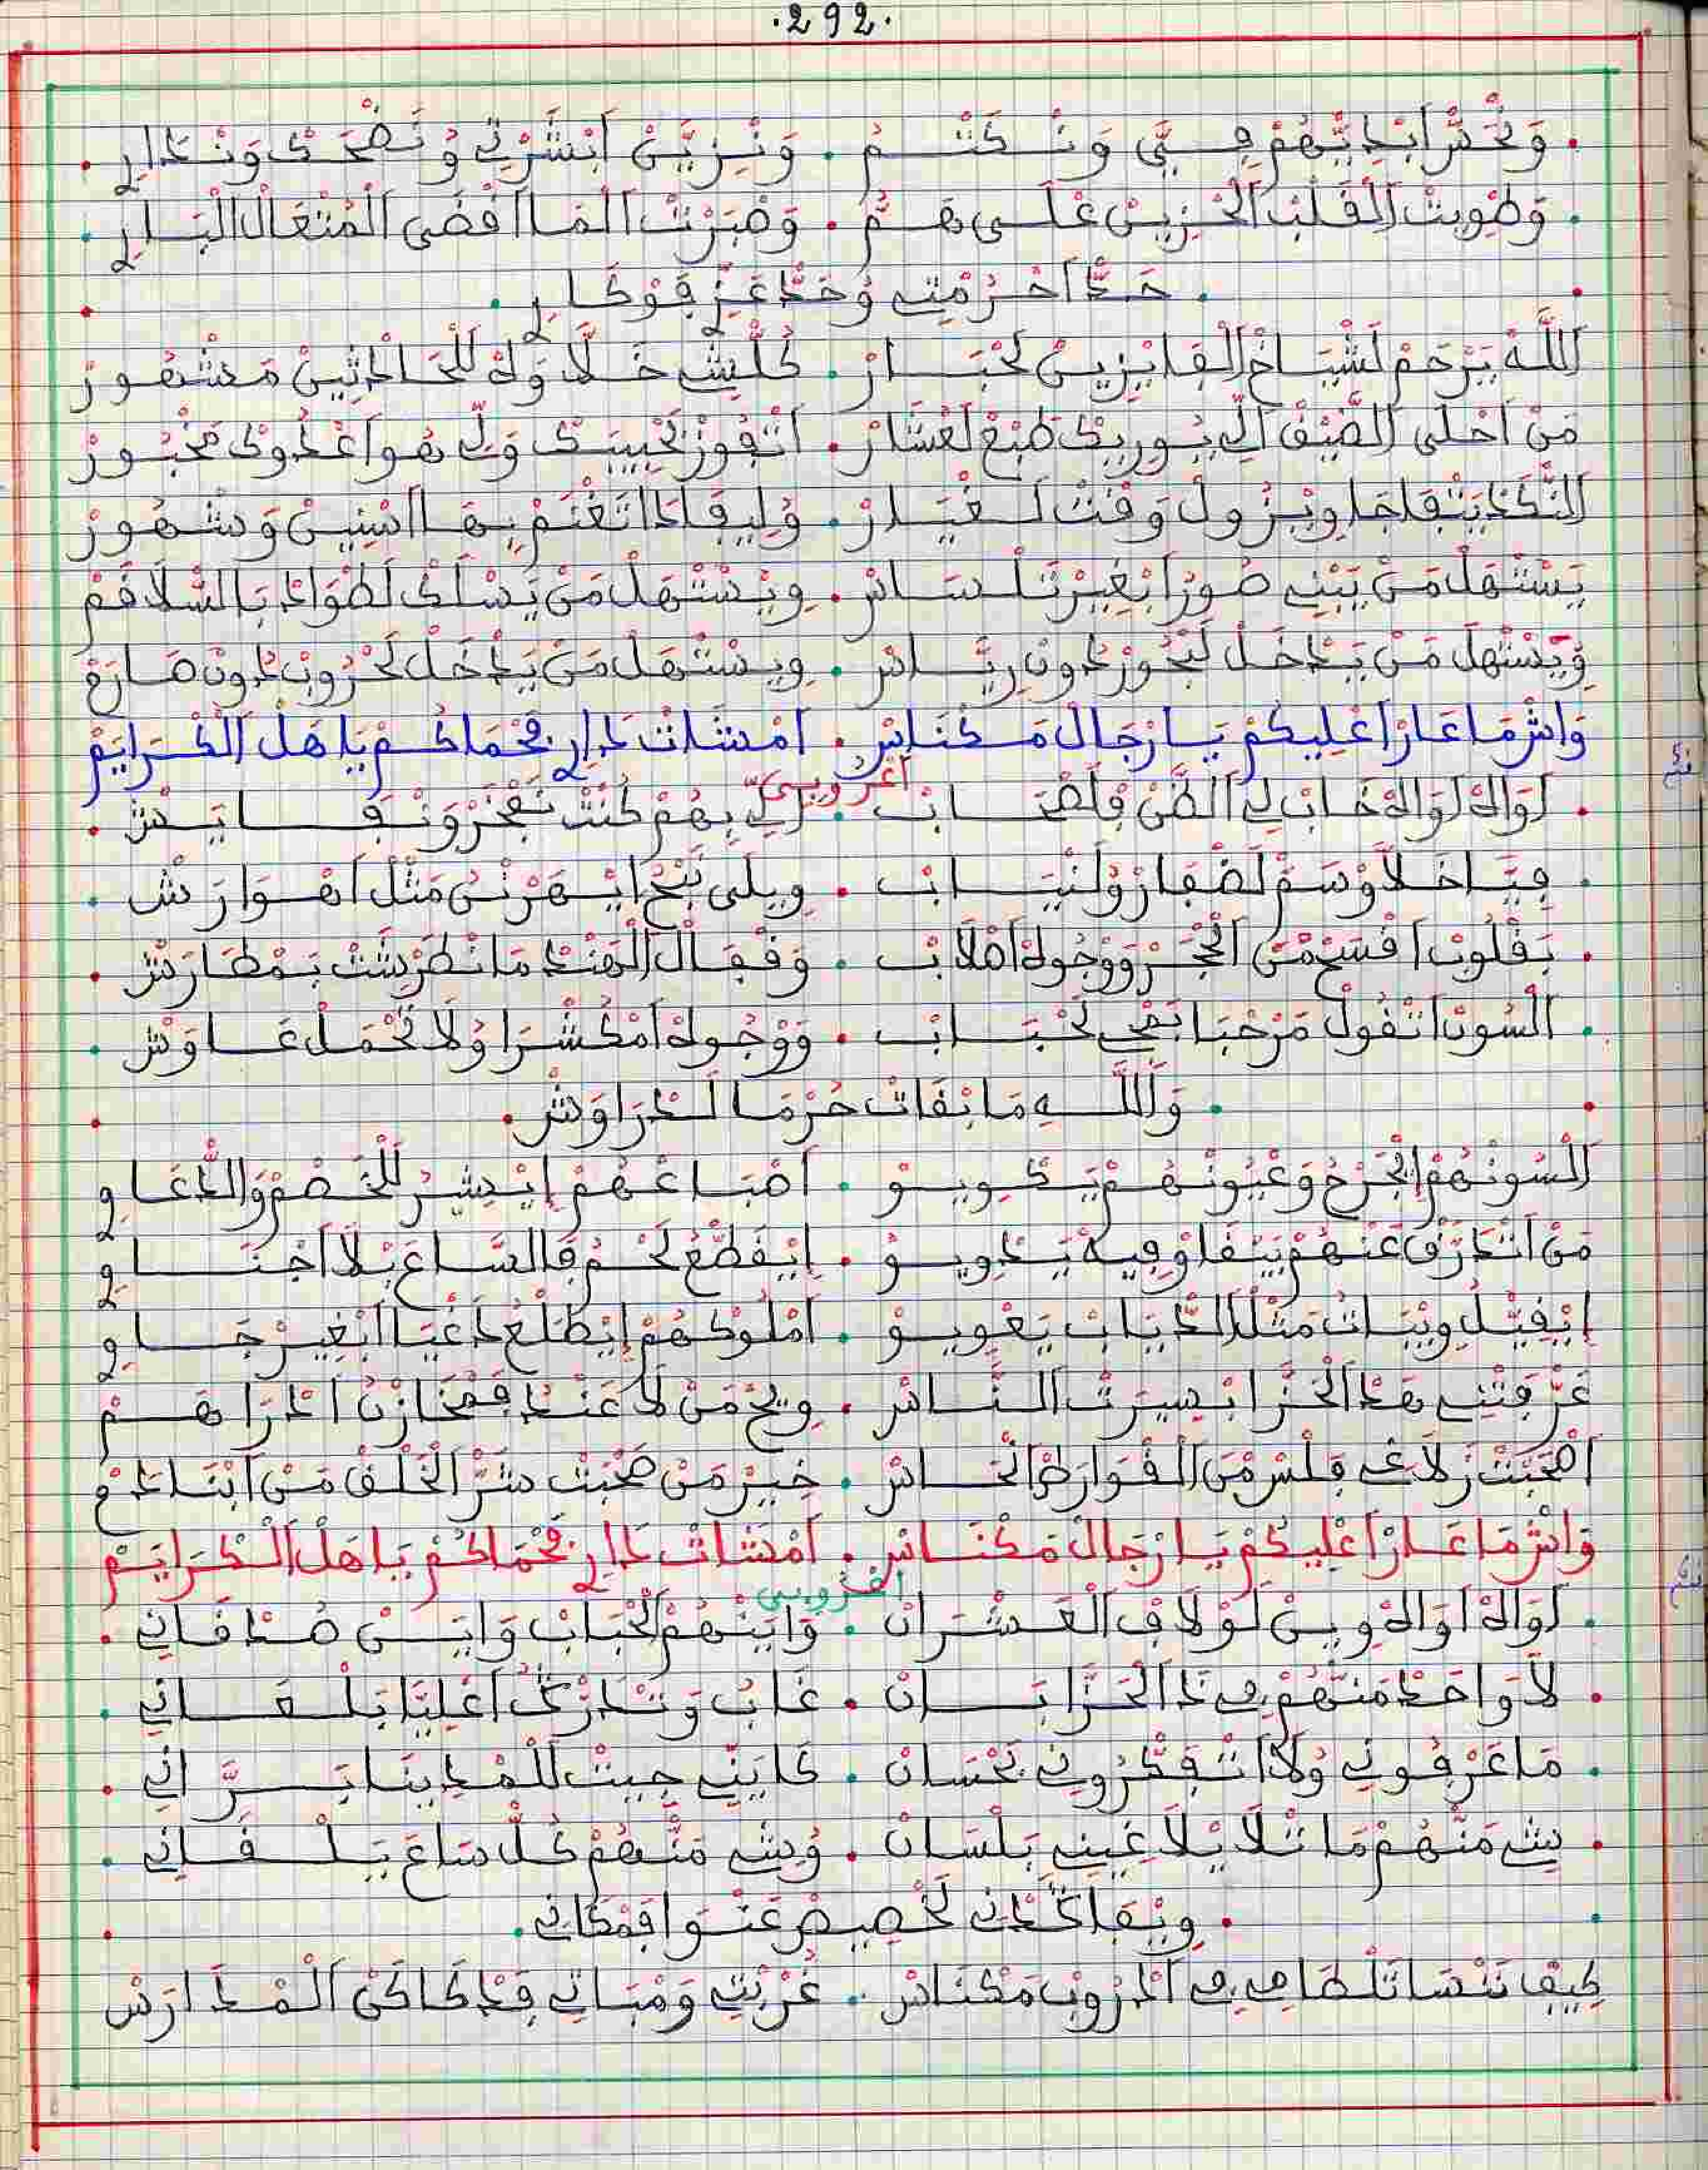 .292.
وَنْخَزَّنْ ابْدِيّهُمْ فِيَّ وَنْكَتْمُ . وَنْزِيَّنْ ابْشَرْتِي وُنَضْحَكْ وَنْدَارِي
وَطْوِيتْ الْقَلْبْ الْحْزِينْ عْلَى هَمُّ . وَصْبَرْتْ الْمَا اقْضَى الْمُتْعَالْ الْبَارِي
حَدّْ احْرُمْتِي وُحَدّْ عَزّْ فَوْكَارِي
اللَّهْ يَرْحَمْ لَشْيَاخْ الْفَايْزِينْ لَحْبَارْ . كُلّْشِي خَلَّاوَهْ لَلْحَادْثِينْ مَشْهُورْ
مَنْ احْلَى الضَّيْفْ الِّي يْوَرِيكْ طَبْعْ لَعْشَارْ . اتْفُوزْ بَحْبِيبَكْ وَلِّي هُوَ اعْدُوكْ مَخْبُورْ
النَّكَدْ يَتْفَاجَا ويْزُولْ وَقْتْ لَغْيَارْ . وُلِيفَادَا تَغْنَمْ بِهَا اسْنِينْ وَشْهُورْ
يَسْتْهَلْ مَنْ يَبْنِي صُورْ ابْغِيرْ تَلْسَاسْ . وِيْسْتَهَلْ مَنْ يَسْلَكْ لَطْوَادْ بَالسّْلَاقَمْ
وِيَسْتْهَلْ مَنْ يَدْخَلْ لَبْحُورْ دُونْ رِيَّاسْ . وِيسْتَهَلْ مَنْ يَدْخَلْ لَحْرُوبْ دُونْ صَارَمْ
وَاشْ مَا عَارْ اعْلِيكُمْ يَا رْجَالْ مَكْنَاسْ . امْشَاتْ دَارِي فَحْمَاكُمْ يَا هَلْ الْكْرَايَمْ
اعْرُوبِي
اوَاهْ اوَاهْ خَابْ لِي الظَّنّْ فَلَصْحَابْ . الِّي بِهُمْ كُنْتْ نَفْخَرْ وَنْفَايَشْ
فِيَّا خَلَّاوْ سَمّْ لَضْفَارْ وُلَنْيَابْ . وِيلَى نَنْحْ ايْهَرْنُ مَثْلْ اهْوَارَشْ
بَقْلُوبْ اقْسَحْ مْنْ الْحْجَرْ وَوْجُوهْ اصْلَابْ . وَفْعَالْ الْهَنْدْ مَا نْطَرْشَتْ بَمْطَارَشْ
الْسُونْ اتْقُولْ مَرْحَبَا بَغْجِي لَحْبَابْ . وَوْجُوهْ امْكَشْرَا وُلَا تَحْمَلْ غَاوَشْ
وَاللَّهِ مَا بْقَاتْ حُرْمَا لَدْرَاوَشْ
الْسُونْهُمْ اتْجَرْحْ وَعْيُونْهُمْ يَكْوِيوْ . اصْبَاعْهُمْ اتْشِيرْ لَلْخَصْمْ وَالدّْعَاوِي
مَنْ اتْدَرَّقْ عَنْهُمْ يَبْقَاوْ فِيهْ يَدْوِيوْ . اِيْقَطّْعُ لَحْمُ فَالسَّاعَ بْلَا اجْنَاوِي
اِيْقِيّْلُ وِيْبَاتُ مَثْلْ الدّْيَابْ يَعْوِيوْ . امْلُوكْهُمْ اِيْطَلْعُ دَغْيَا ابْغِيرْ جَاوِي
عَرّْفَتْنِي هَذْ الْحَزَّ ابْسِيرْتْ النَّاسْ . وِيحْ مَنْ لَا عَنْدُ فَمْخَازْنُ ادْرَاهَمْ
اصْحَبْتْ زَلَّاعِي فَلْسْ مْنْ الْقْوَارَطْ انْحَاسْ . خِيرْ مَنْ صَحْبَتْ شَرّْ الْخَلْقْ مَنْ ابْنَادَمْ
وَاشْ مَا عَارْ اعْلِيكُمْ يَا رْجَالْ مَكْنَاسْ . امْشَاتْ دَارِي فَحْمَاكُمْ يَا هَلْ الْكْرَايَمْ
اعْرُوبِي
اوَاهْ اوَاهْ وِينْ لَوْلَافْ الْعَشْرَانْ . وَايْنْهُمْ الْحْبَابْ وَايَنْ صُدْقَانِي
لَا وَاحَدْ مَنّْهُمْ فِي ذَ الْحَزَّا بَانْ . غَابُ وَتْدَرّْكُ اعْلِيَّا بَلْعَانِي
مَا عَرْفُونِي وُلَا اتْفَكْرُونِي بَحْسَانْ . كَايَنِّي جِيتْ لَلْمْدِينَا بَرَّانِي
شِي مَنّْهُمْ مَا تْلَا يْلَاغِينِي بَلْسَانْ . وُشِي مَنّْهُمْ كُلّْ سَاعَ يَلْقَانِي
وِيْقَا كَدّْنِي لَخْصِيصْ عَنُّوا فَمْكَانِي
كِيفْ نَنْسَا تَلْطَامِي فِي ادْرُوبْ مَكْنَاسْ . غُرْبْتِي وَمْبَاتِي فَدْكَاكَنْ الْمْدَارَسْ